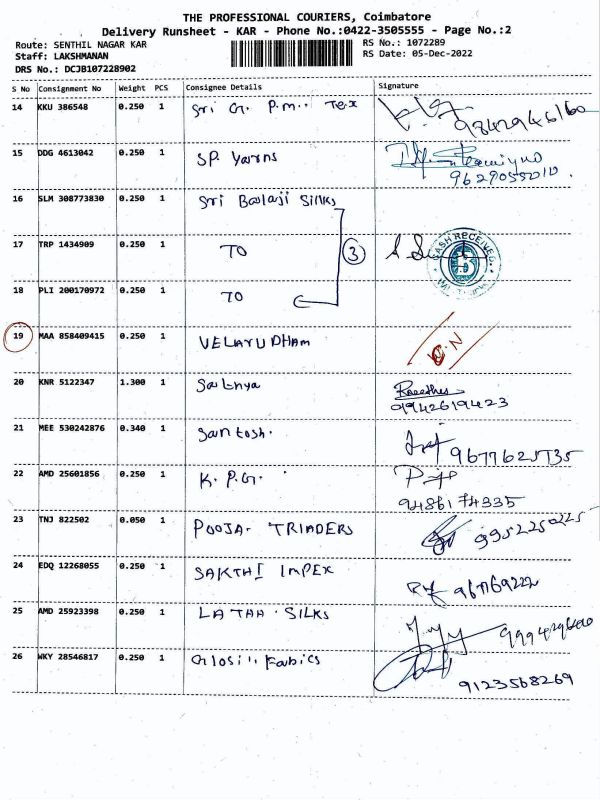 THE PROFESSIONAL COURIERS, Coimbatore
Delivery Runsheet - KAR - Phone No.:0422-3505555 - Page No.:2
Route: SENTHIL NAGAR KAR
RS No.: 1072289
Staff: LAKSHMANAN
RS Date: 05-Dec-2022
DRS No.: DCJB107228902
S No Consignment No Weight PCS Consignee Details Signature
14 KKU 386548 0.250 1 Sri G. P.m. Tex
9842946160
15 DDG 4613042 0.250 1 SP Yarns
9629055010.
16 SLM 308773830 0.250 1 Sri Balaji Silks
17 TRP 1434909 0.250 1 TO 3
CASH RECEIVED
18 PLI 200170972 0.250 1 TO
19 MAA 858409415 0.250 1 VELAYUDHAM
20 KNR 5122347 1.300 1
9942619423
21 MEE 530242876 0.340 1 Santosh.
9677625735
22 AMD 25601856 0.250 1 K. P.G.
9486174335
23 TNJ 822502 0.050 1 POOJA. TRIADERS
9952250225
24 EDQ 12268055 0.250 1 SAKTHI IMPEX
25 AMD 25923398 0.250 1 LATHA SILKS
26 WKY 28546817 0.250 1
9123568269